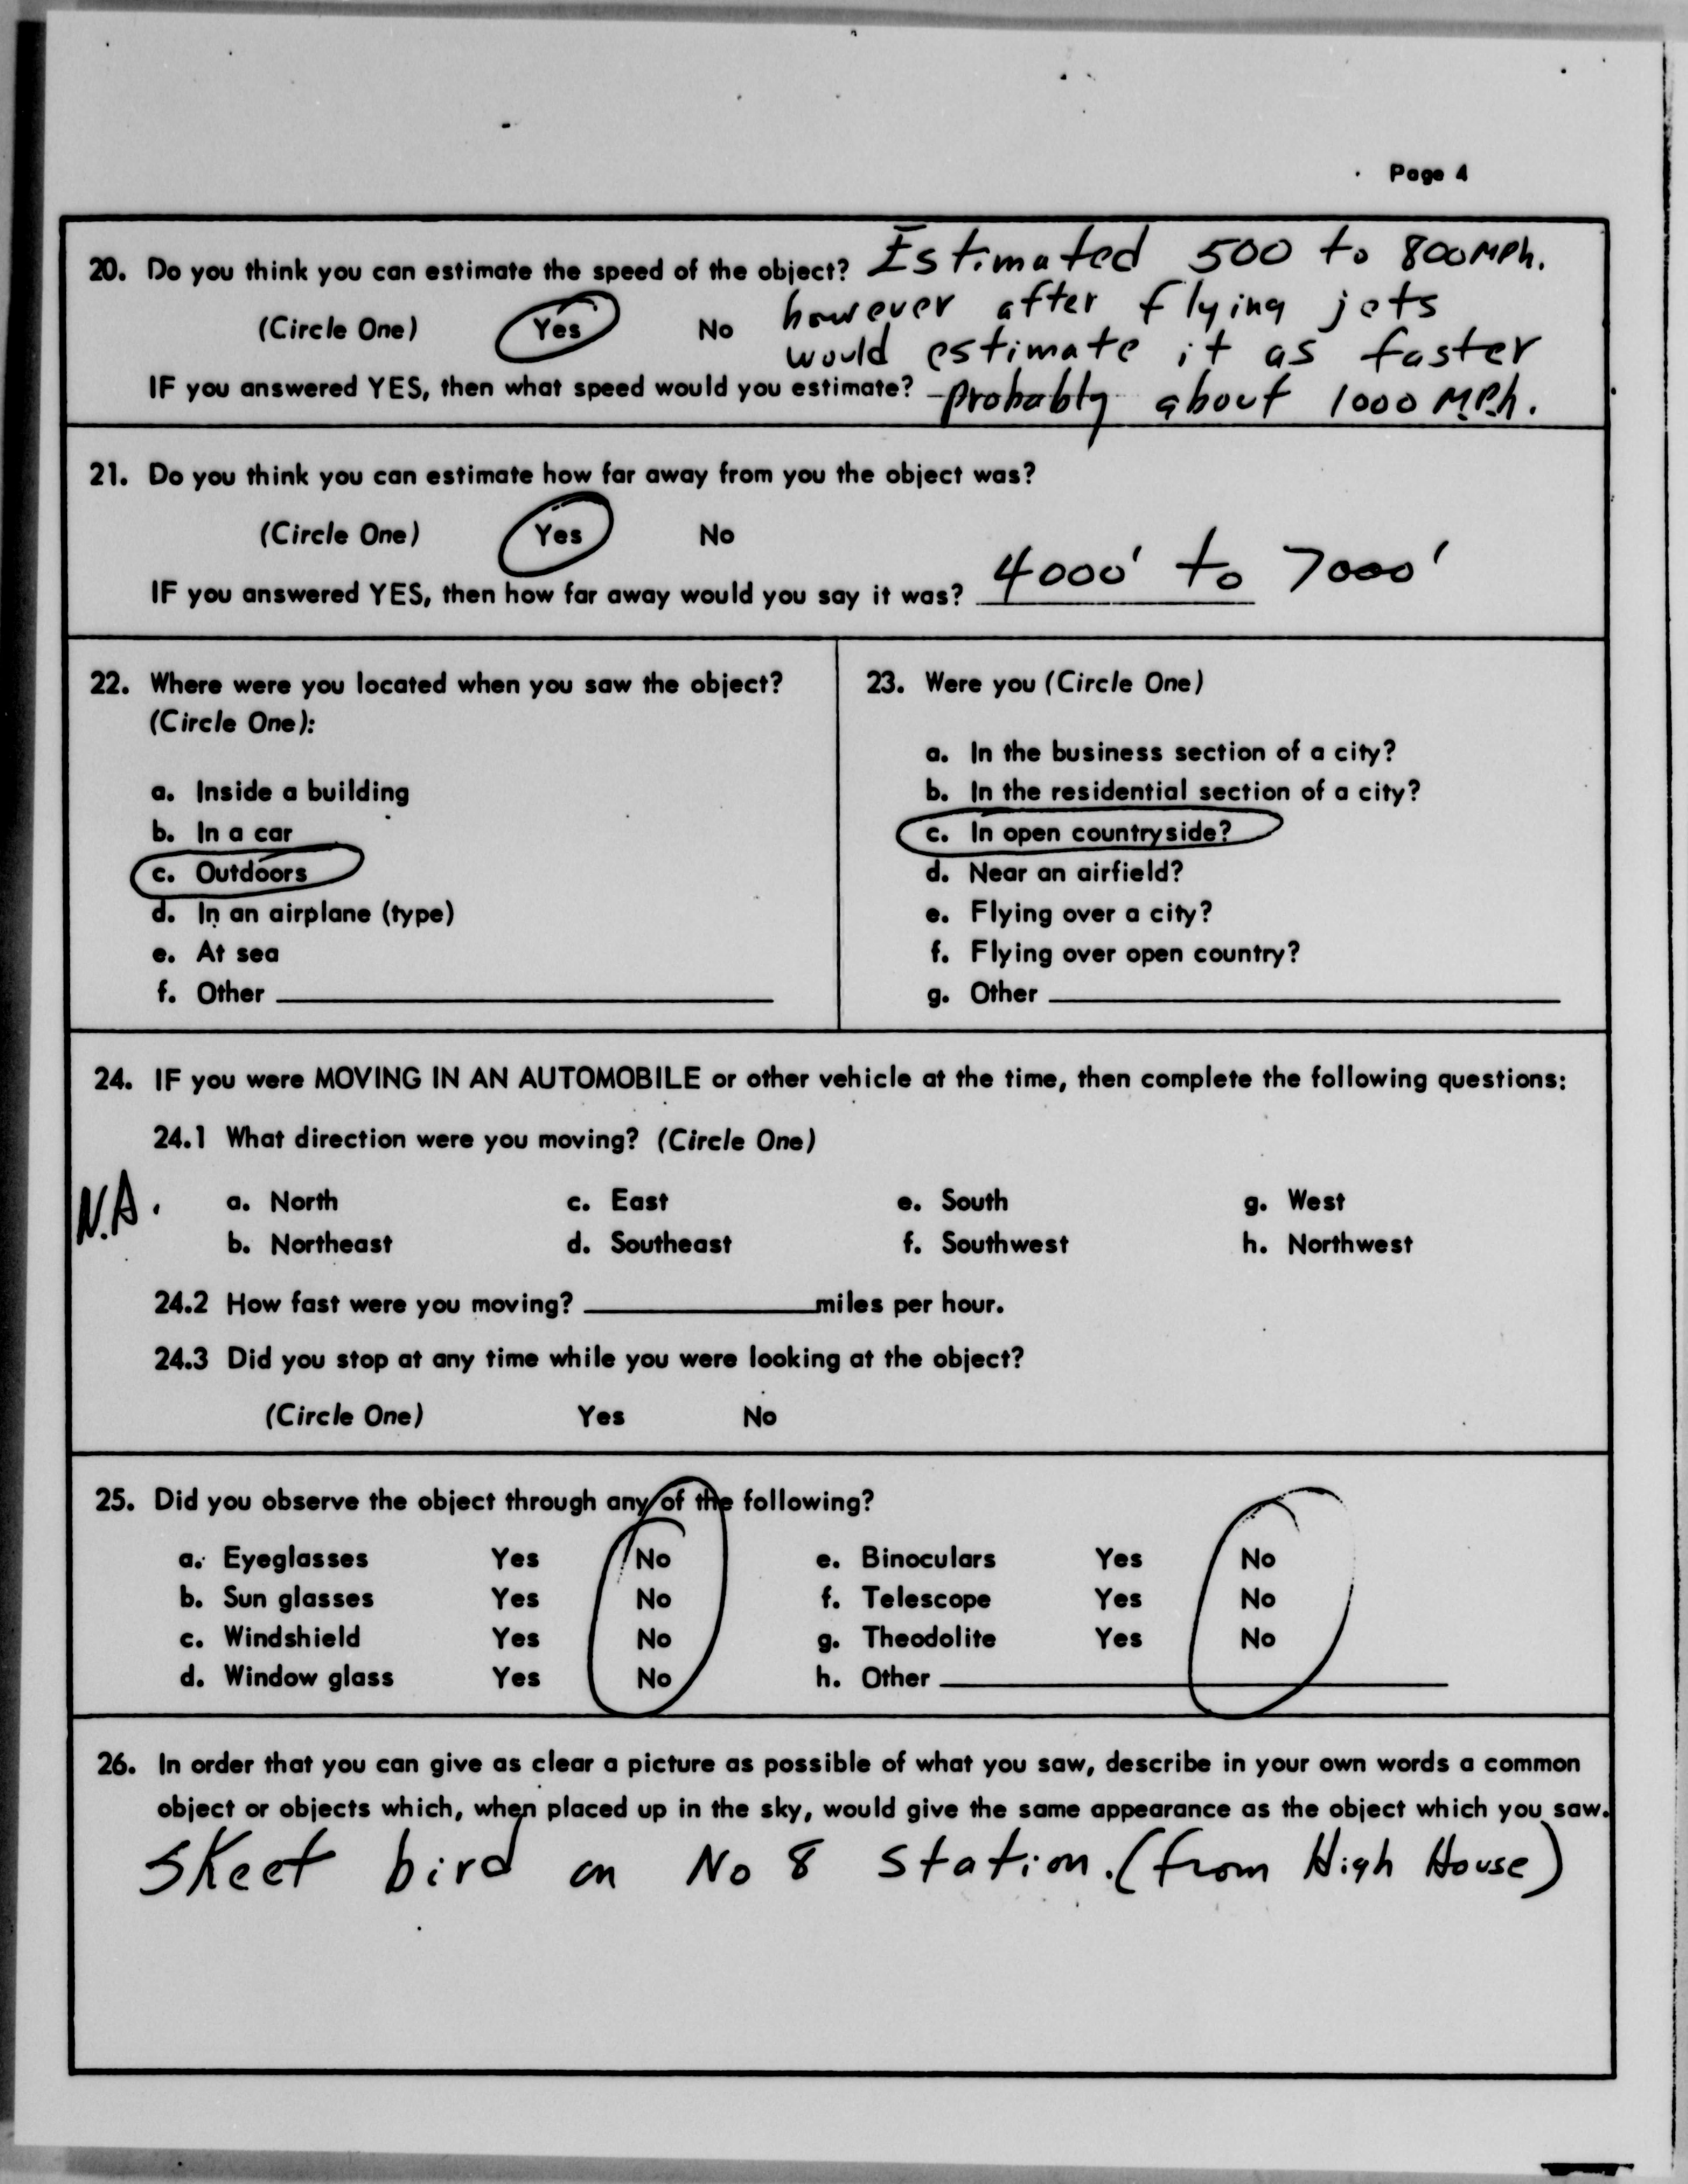 Page 4
20. Do you think you can estimate the speed of the object? Estimated 500 to 800 MPh.
(Circle One) Yes No however after flying jets
would estimate it as faster
IF you answered YES, then what speed would you estimate? - probably about 1000 M.P.h.
21. Do you think you can estimate how far away from you the object was?
(Circle One) Yes No
IF you answered YES, then how far away would you say it was? 4000' to 7000'
22. Where were you located when you saw the object?
(Circle One):
a. Inside a building
b. In a car
c. Outdoors
d. In an airplane (type)
e. At sea
f. Other
23. Were you (Circle One)
a. In the business section of a city?
b. In the residential section of a city?
c. In open countryside?
d. Near an airfield?
e. Flying over a city?
f. Flying over open country?
g. Other
24. IF you were MOVING IN AN AUTOMOBILE or other vehicle at the time, then complete the following questions:
24.1 What direction were you moving? (Circle One)
N.A. a. North c. East e. South g. West
b. Northeast d. Southeast f. Southwest h. Northwest
24.2 How fast were you moving? miles per hour.
24.3 Did you stop at any time while you were looking at the object?
(Circle One) Yes No
25. Did you observe the object through any of the following?
a. Eyeglasses Yes No e. Binoculars Yes No
b. Sun glasses Yes No f. Telescope Yes No
c. Windshield Yes No g. Theodolite Yes No
d. Window glass Yes No h. Other
26. In order that you can give as clear a picture as possible of what you saw, describe in your own words a common
object or objects which, when placed up in the sky, would give the same appearance as the object which you saw.
Skeet bird on No 8 Station. (from High House)